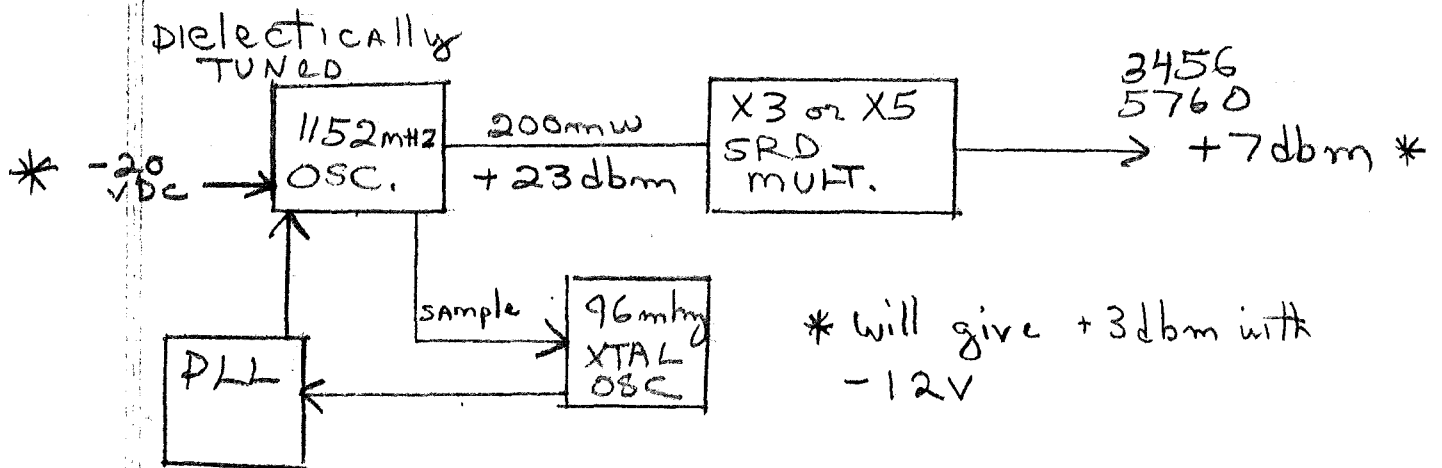 DIelectICAlly
TUNeD
1152mHz
OSC.
* -20
VDC
200mw
+23dbm
X3 or X5
SRD
MULT.
3456
5760
+7dbm *
sAmple
96mhz
XTAL
OSC
PLL
* will give +3dbm with
-12V